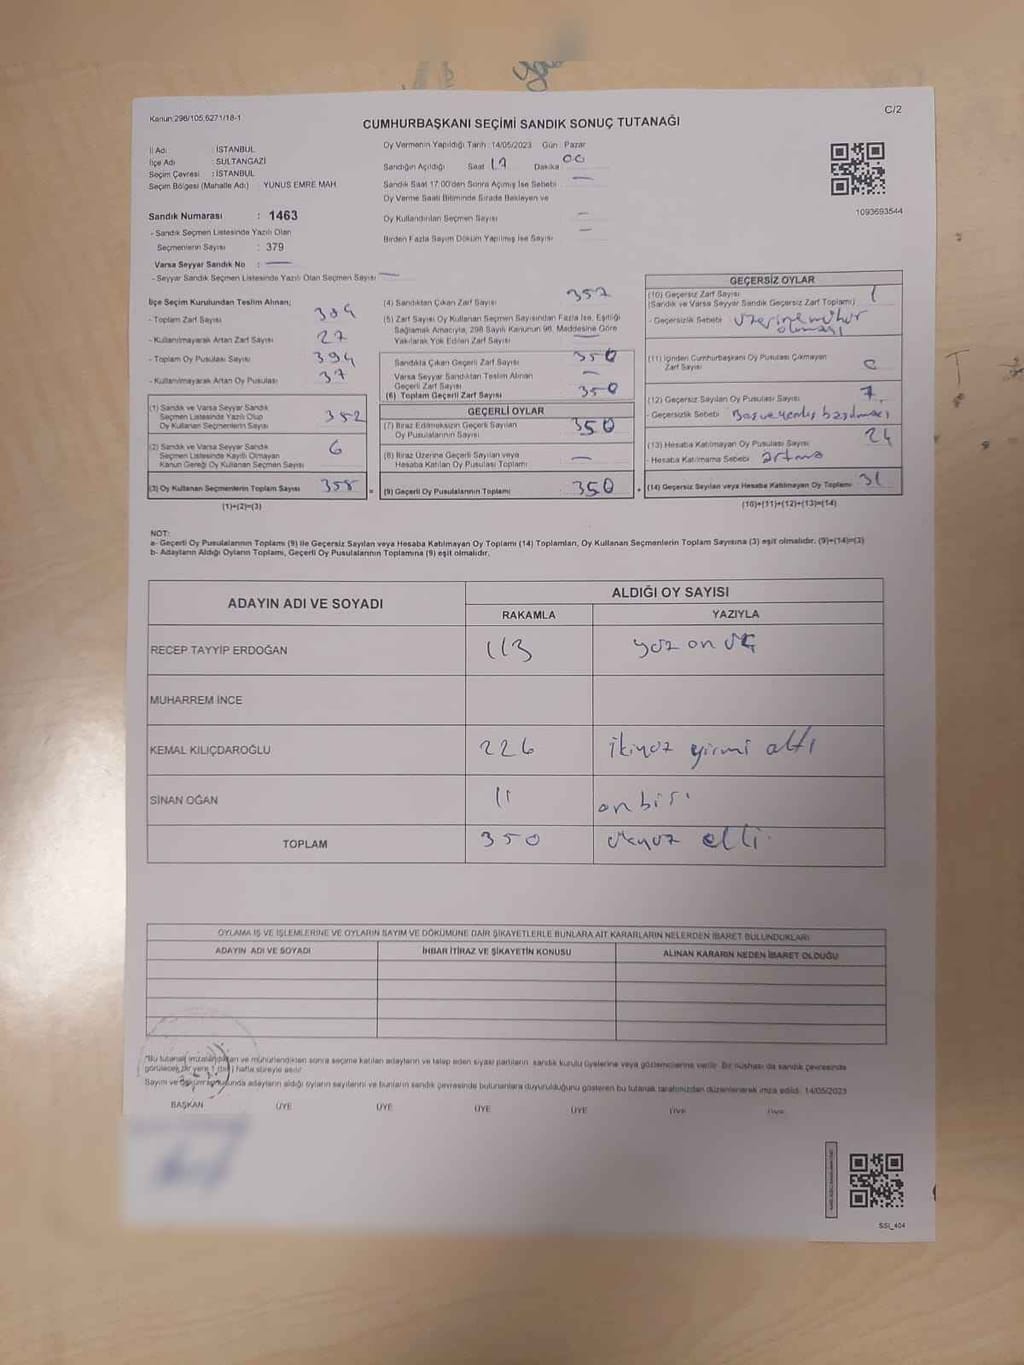 Kanun:298/105,6271/18-1
C/2
CUMHURBAŞKANI SEÇİMİ SANDIK SONUÇ TUTANAĞI
İl Adı : İSTANBUL
İlçe Adı : SULTANGAZİ
Seçim Çevresi : İSTANBUL
Seçim Bölgesi (Mahalle Adı) YUNUS EMRE MAH.
Sandık Numarası : 1463
- Sandık Seçmen Listesinde Yazılı Olan
Seçmenlerin Sayısı : 379
Varsa Seyyar Sandık No : —
- Seyyar Sandık Seçmen Listesinde Yazılı Olan Seçmen Sayısı : —
Oy Vermenin Yapıldığı Tarih : 14/05/2023 Gün : Pazar
Sandığın Açıldığı Saat 17 Dakika 00
Sandık Saat 17.00'den Sonra Açılmış İse Sebebi —
Oy Verme Saati Bitiminde Sırada Bekleyen ve
Oy Kullandırılan Seçmen Sayısı —
Birden Fazla Sayım Döküm Yapılmış İse Sayısı —
1093693544
İlçe Seçim Kurulundan Teslim Alınan;
- Toplam Zarf Sayısı 384
- Kullanılmayarak Artan Zarf Sayısı 27
- Toplam Oy Pusulası Sayısı 394
- Kullanılmayarak Artan Oy Pusulası 37
(1) Sandık ve Varsa Seyyar Sandık
Seçmen Listesinde Yazılı Olup
Oy Kullanan Seçmenlerin Sayısı 352
(2) Sandık ve Varsa Seyyar Sandık
Seçmen Listesinde Kayıtlı Olmayan
Kanun Gereği Oy Kullanan Seçmen Sayısı 6
(3) Oy Kullanan Seçmenlerin Toplam Sayısı 358 =
(1)+(2)=(3)
(4) Sandıktan Çıkan Zarf Sayısı 357
(5) Zarf Sayısı Oy Kullanan Seçmen Sayısından Fazla İse, Eşitliği
Sağlamak Amacıyla, 298 Sayılı Kanunun 98. Maddesine Göre
Yakılarak Yok Edilen Zarf Sayısı —
Sandıkta Çıkan Geçerli Zarf Sayısı 350
Varsa Seyyar Sandıktan Teslim Alınan
Geçerli Zarf Sayısı —
(6) Toplam Geçerli Zarf Sayısı 350
GEÇERLİ OYLAR
(7) İtiraz Edilmeksizin Geçerli Sayılan
Oy Pusulalarının Sayısı 350
(8) İtiraz Üzerine Geçerli Sayılan veya
Hesaba Katılan Oy Pusulası Toplamı —
(9) Geçerli Oy Pusulalarının Toplamı 350 +
GEÇERSİZ OYLAR
(10) Geçersiz Zarf Sayısı
(Sandık ve Varsa Seyyar Sandık Geçersiz Zarf Toplamı) 1
- Geçersizlik Sebebi üzerine mühür
olmayı
(11) İçinden Cumhurbaşkanı Oy Pusulası Çıkmayan
Zarf Sayısı
(12) Geçersiz Sayılan Oy Pusulası Sayısı 7
- Geçersizlik Sebebi
(13) Hesaba Katılmayan Oy Pusulası Sayısı 24
- Hesaba Katılmama Sebebi artma
(14) Geçersiz Sayılan veya Hesaba Katılmayan Oy Toplamı 31
(10)+(11)+(12)+(13)=(14)
NOT:
a- Geçerli Oy Pusulalarının Toplamı (9) ile Geçersiz Sayılan veya Hesaba Katılmayan Oy Toplamı (14) Toplamları, Oy Kullanan Seçmenlerin Toplam Sayısına (3) eşit olmalıdır. (9)+(14)=(3)
b- Adayların Aldığı Oyların Toplamı, Geçerli Oy Pusulalarının Toplamına (9) eşit olmalıdır.
ADAYIN ADI VE SOYADI
ALDIĞI OY SAYISI
RAKAMLA YAZIYLA
RECEP TAYYİP ERDOĞAN 113 yüz on üç
MUHARREM İNCE
KEMAL KILIÇDAROĞLU 226 ikiyüz yirmi altı
SİNAN OĞAN 11 on bir
TOPLAM 350 üçyüz elli
OYLAMA İŞ VE İŞLEMLERİNE VE OYLARIN SAYIM VE DÖKÜMÜNE DAİR ŞİKAYETLERLE BUNLARA AİT KARARLARIN NELERDEN İBARET BULUNDUKLARI
ADAYIN ADI VE SOYADI İHBAR İTİRAZ VE ŞİKAYETİN KONUSU ALINAN KARARIN NEDEN İBARET OLDUĞU
"Bu tutanak imzalandıktan ve mühürlendikten sonra seçime katılan adayların ve talep eden siyasi partilerin sandık kurulu üyelerine veya gözlemcilerine verilir. Bir nüshası da sandık çevresinde
görülecek bir yere 1 (bir) hafta süreyle asılır.
Sayım ve döküm sonucunda adayların aldığı oyların sayılarını ve bunların sandık çevresinde bulunanlara duyurulduğunu gösteren bu tutanak tarafımızdan düzenlenerek imza edildi. 14/05/2023
BAŞKAN ÜYE ÜYE ÜYE ÜYE ÜYE ÜYE
SSI_404